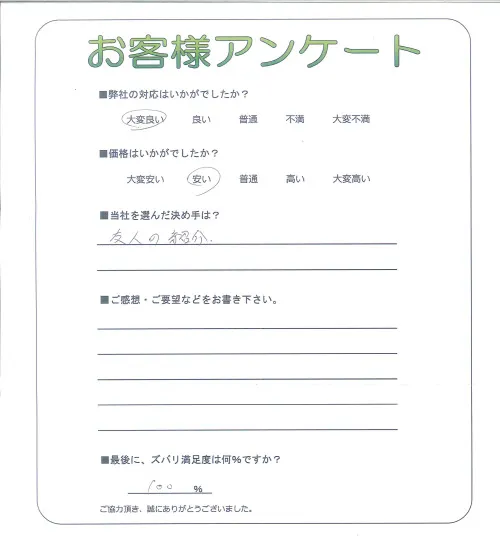 お客様アンケート
■弊社の対応はいかがでしたか？
大変良い 良い 普通 不満 大変不満
■価格はいかがでしたか？
大変安い 安い 普通 高い 大変高い
■当社を選んだ決め手は？
友人の紹介.
■ご感想・ご要望などをお書き下さい。
■最後に、ズバリ満足度は何%ですか？
100 %
ご協力頂き、誠にありがとうございました。